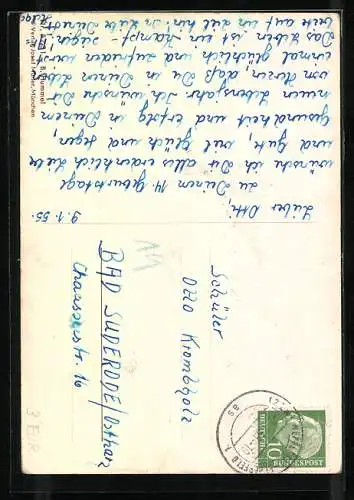 9.1.55.
Lieber Otto,
zu Deinem 14. Geburtstage
wünsche ich Dir alles erdenklich Liebe
und Gute, viel Glück und Segen,
Gesundheit und Erfolg in Deinem
neuen Lebensjahr. Ich wünsche Dir
von Herzen, daß Du in Deinem
einmal glücklich und zufrieden wirst
Das Leben ist ein Kampf, siegen
Verlag Josef Müller, München
Hummel
Schüler
Otto Krombholz
BAD SUDERODE/Ostharz
Chausseestr. 16
10
DEUTSCHE
BUNDESPOST
3 EUR